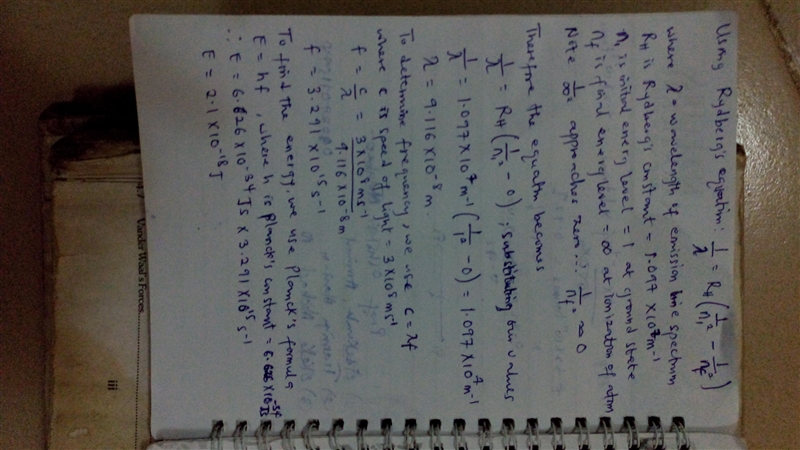 Using Rydberg's equation: 1/λ = R_H (1/n₁² − 1/n_f²)
where λ = wavelength of emission line spectrum
R_H is Rydberg's constant = 1.097 × 10⁷ m⁻¹
n₁ is initial energy level = 1 at ground state
n_f is final energy level = ∞ at ionization of atom
Note 1/∞² approaches zero ∴ 1/n_f² ≈ 0
Therefore the equation becomes
1/λ = R_H (1/n₁² − 0), substituting our values
1/λ = 1.097 × 10⁷ m⁻¹ (1/1² − 0) = 1.097 × 10⁷ m⁻¹
λ = 9.116 × 10⁻⁸ m.
To determine frequency, we use c = λf
where c is speed of light = 3 × 10⁸ ms⁻¹
f = c/λ = 3 × 10⁸ ms⁻¹ / 9.116 × 10⁻⁸ m
f = 3.291 × 10¹⁵ s⁻¹
To find the energy, we use Planck's formula
E = hf, where h is Planck's constant = 6.626 × 10⁻³⁴ Js
∴ E = 6.626 × 10⁻³⁴ Js × 3.291 × 10¹⁵ s⁻¹
E = 2.1 × 10⁻¹⁸ J
Vander Waal's Forces
iii